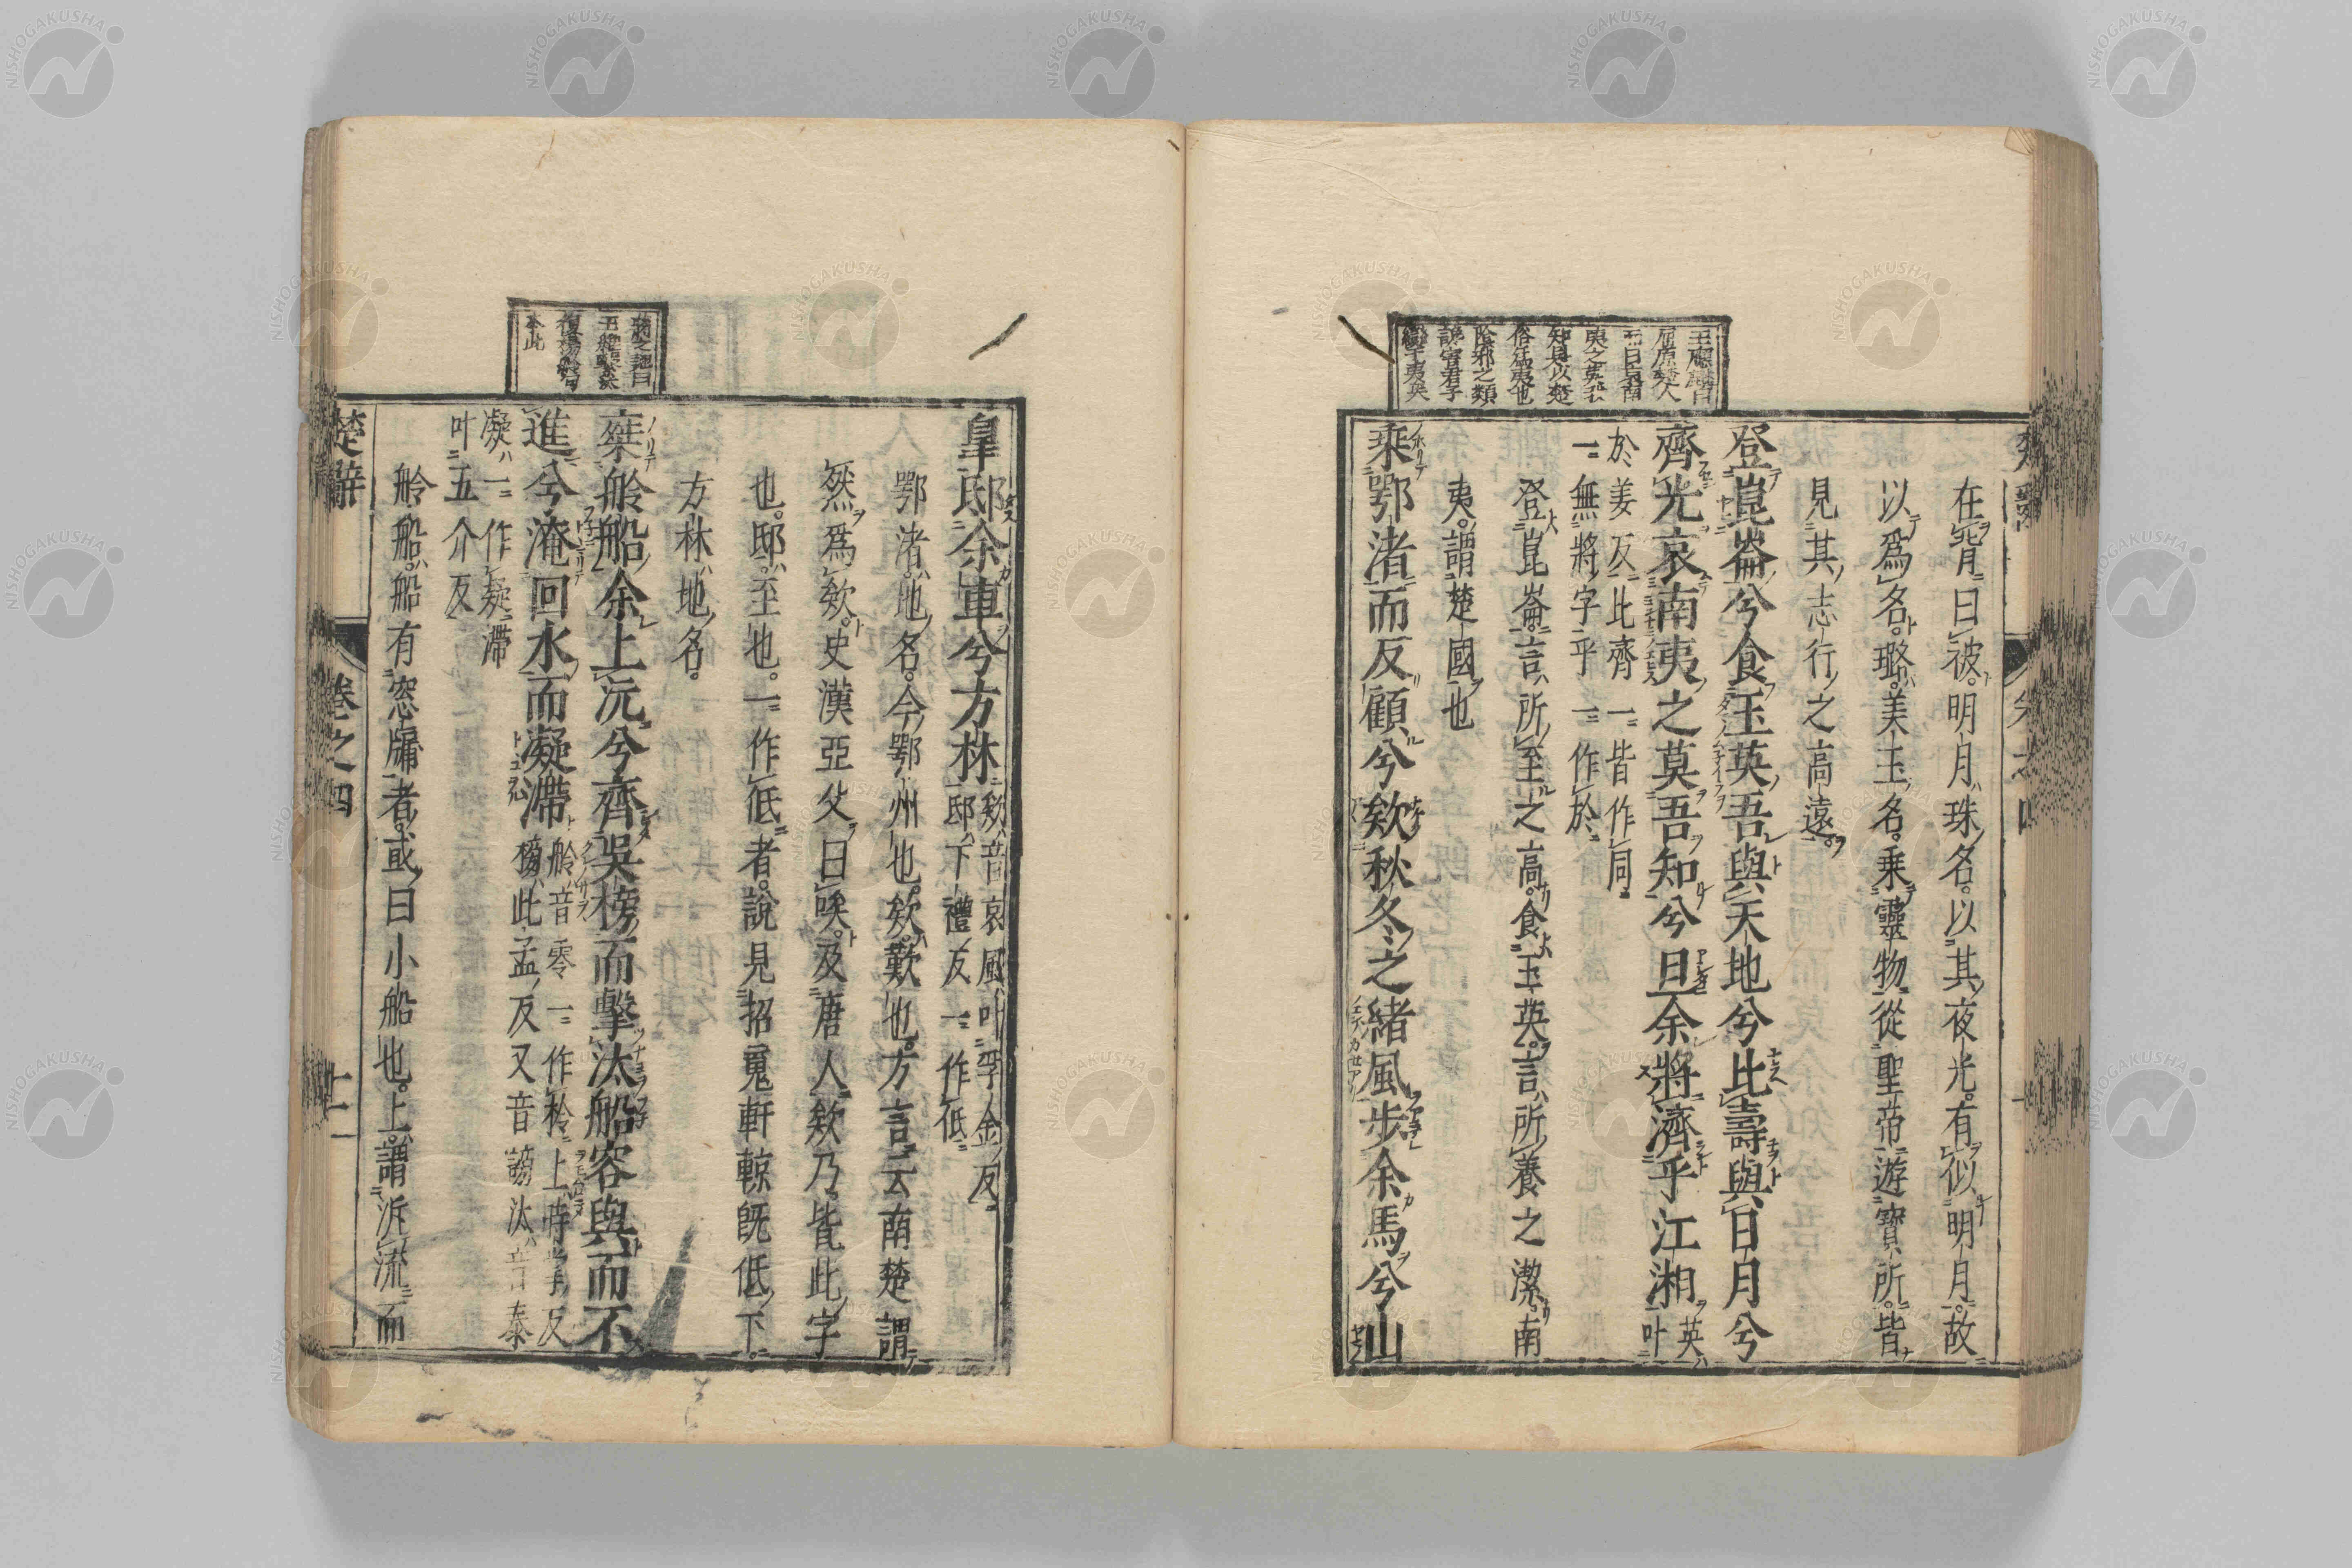 王應麟曰
屈原楚人
而曰哀南
夷之莫吾
知是以楚
俗爲夷也
陰邪之類
讒害君子
變于夷矣
在背曰被。明月珠名。以其夜光。有似明月。故
以爲名。璐美玉名。乘靈物從聖帝遊寶所。皆
見其志行之高遠。
登崑崙兮食玉英吾與天地兮比壽與日月兮
齊光哀南夷之莫吾知兮旦余將濟乎江湘英叶
於姜反比齊一皆作同
一無將字乎一作於
登崑崙。言所至之高。食玉英。言所養之潔。南
夷。謂楚國也
乘鄂渚而反顧兮欸秋冬之緒風步余馬兮山
皇邸余車兮方林欸音哀風叶孚金反
邸下禮反一作低
鄂渚。地名。今鄂州也。欸。歎也。方言云南楚謂
然爲欸。史漢亞父曰唉。及唐人欸乃。皆此字
也。邸。至也。一作低者。說見招魂軒輬既低下。
方林地名。
乘舲船余上沅兮齊吳榜而擊汰船容與而不
進兮淹回水而凝滯舲音零一作柃上時掌反
榜此孟反又音謗汰音泰
凝一作疑滯
叶五介反
舲船。船有窓牖者。或曰小船也。上。謂泝流而
楚辭
卷之四
十一